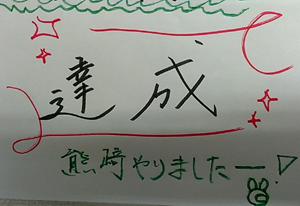 達成
熊崎やりましたー!